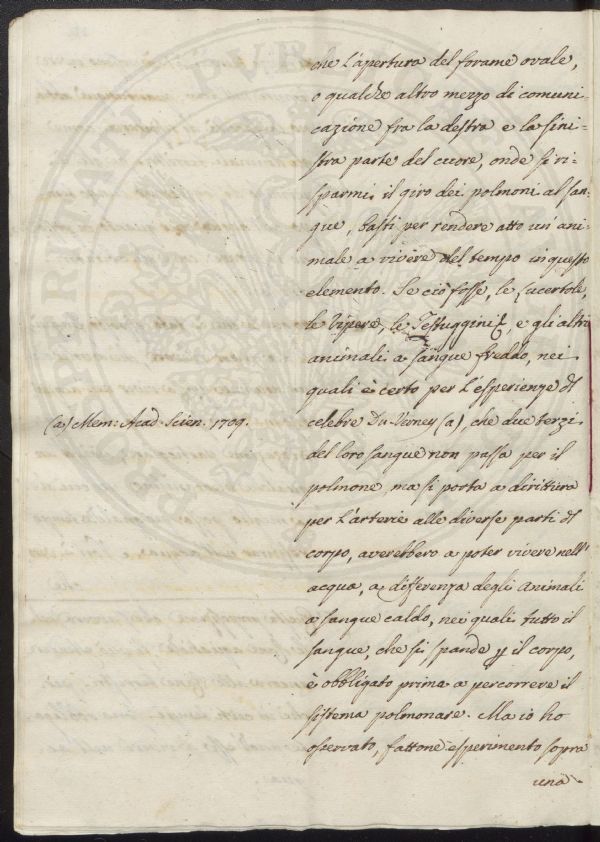 che l'apertura del forame ovale,
o qualche altro mezzo di comuni-
cazione fra la destra e la sini-
stra parte del cuore, onde si ri-
sparmi il giro dei polmoni al san-
gue, basti per rendere atto un' ani-
male a vivere del tempo in questo
elemento. Se ciò fosse, le Lucertole,
le Vipere, le Testuggini, e gli altri
animali a sangue freddo, nei
quali è certo per l'esperienze del
(a) Mem: Acad. Scien. 1709.
celebre Du-Verney (a), che due terzi
del loro sangue non passa per il
polmone, ma si porta a dirittura
per l'arterie alle diverse parti del
corpo, averebbero a poter vivere nell'
acqua, a differenza degli Animali
a sangue caldo, nei quali tutto il
sangue, che si spande p il corpo,
è obbligato prima a percorrere il
sistema polmonare. Ma io ho
osservato, fattone esperimento sopra
una